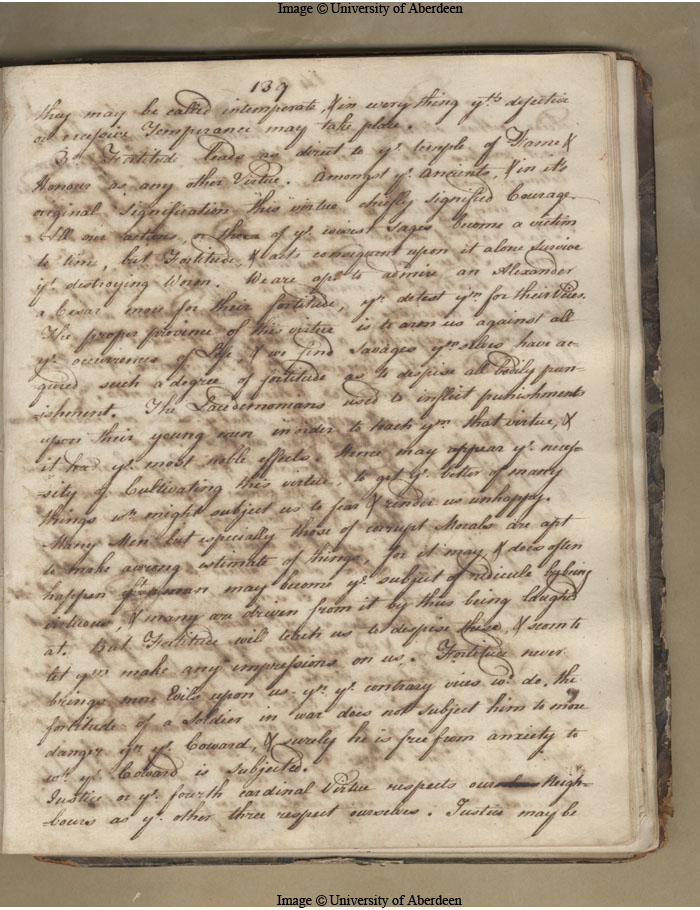 Image © University of Aberdeen
139
they may be called intemperate, & in every thing yts defective
or excessive Temperance may take place.
3. Fortitude leads as direct to ye. temple of Fame &
Honour as any other Virtue. Amongst ye. Ancients, & in its
original signification this virtue chiefly signified Courage.
All our actions, or those of ye. wisest Sages become a victim
to time, but Fortitude, & acts consequent upon it alone survive
ye. destroying Worm. We are apt to admire an Alexander
a Cesar more for their fortitude, yn detest ym for their Vices.
The proper province of this virtue is to arm us against all
ye. occurrences of Life & we find Savages ymselves have ac-
quired such a degree of fortitude as to despise all bodily pun-
-ishment. The Lacedemonians used to inflict punishments
upon their young men in order to teach ym that virtue, &
it had ye. most noble effects. Hence may appear ye. neces-
-sity of Cultivating this virtue, to get ye. better of many
things wh might subject us to fear & render us unhappy.
Many Men but especially those of corrupt Morals are apt
to make a wrong estimate of things, for it may & does often
happen yt a man may become ye. subject of ridicule by being
virtuous, & many are driven from it by thus being laughed
at. But Fortitude will teach us to despise these, & scorn to
let ym make any impressions on us. Fortitude never
brings more Evils upon us yn ye. contrary vices wd. do. the
fortitude of a Soldier in war does not subject him to more
danger yn ye. Coward, & surely he is free from anxiety to
wh. ye. Coward is subjected.
Justice or ye. fourth cardinal Virtue respects our Neigh-
-bours as ye. other three respect ourselves. Justice may be
Image © University of Aberdeen